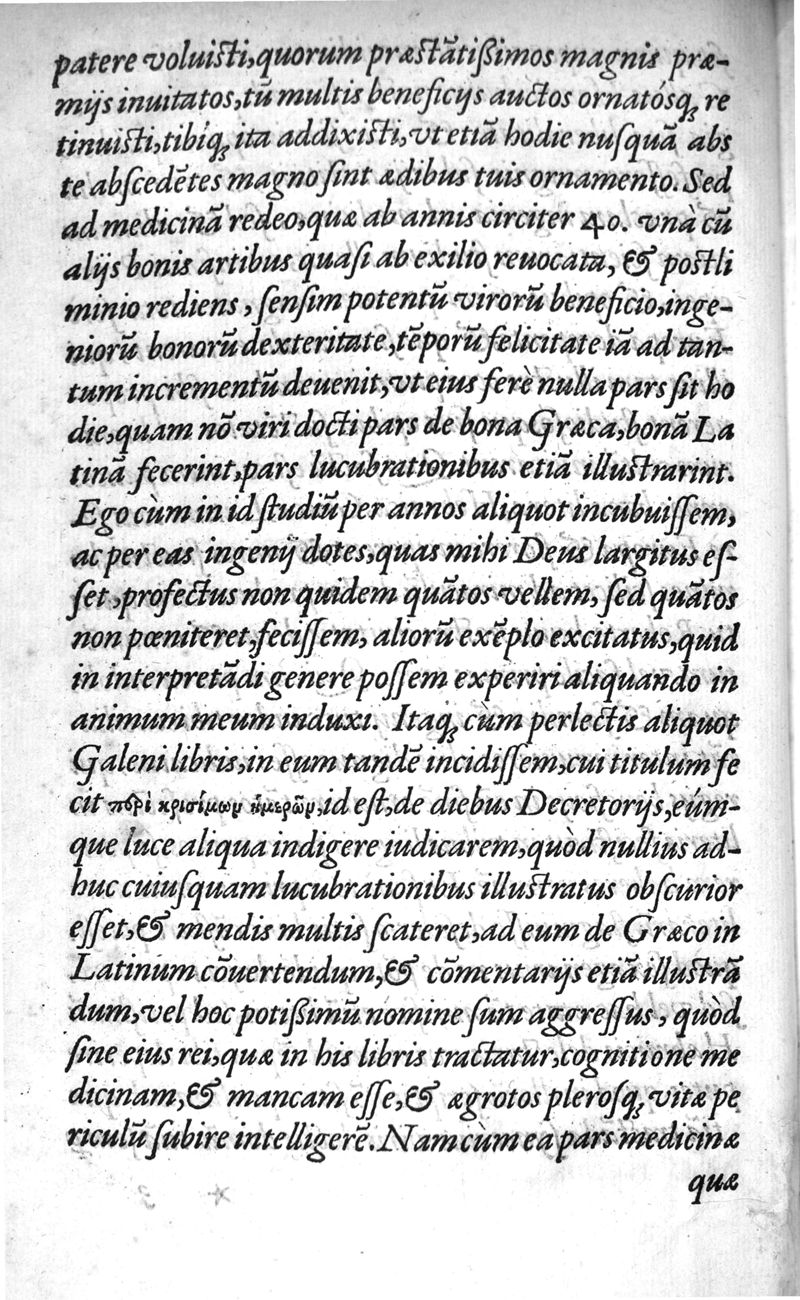 patere voluisti, quorum præstãtißimos magnis præ-
mijs inuitatos, tũ multis beneficijs auctos ornatósq́; re
tinuisti, tibiq́; ita addixisti, vt etiã hodie nuſquã abs
te abſcedẽtes magno ſint ædibus tuis ornamento. Sed
ad medicinã redeo, quæ ab annis circiter 40. vnà cũ
alijs bonis artibus quaſi ab exilio reuocata, & postli
minio rediens, ſenſim potentũ virorũ beneficio, inge-
niorũ bonorũ dexteritate, tẽporũ felicitate iã ad tan-
tum incrementũ deuenit, vt eius ferè nulla pars ſit ho
die, quam nõ viri docti pars de bona Græca, bonã La
tinã fecerint, pars lucubrationibus etiã illustrarint.
Ego cùm in id ſtudiũ per annos aliquot incubuiſſem,
ac per eas ingenij dotes, quas mihi Deus largitus eſ-
ſet, profectus non quidem quãtos vellem, ſed quãtos
non pœniteret, feciſſem, aliorũ exẽplo excitatus, quid
in interpretãdi genere poſſem experiri aliquando in
animum meum induxi. Itaq́; cùm perlectis aliquot
Galeni libris, in eum tandẽ incidiſſem, cui titulum fe
cit περὶ κρισίμων ἡμερῶν, id eſt, de diebus Decretorijs, eúm-
que luce aliqua indigere iudicarem, quòd nullius ad-
huc cuiuſquam lucubrationibus illustratus obſcurior
eſſet, & mendis multis ſcateret, ad eum de Græco in
Latinum cõuertendum, & cõmentarijs etiã illustrã
dum, vel hoc potißimũ nomine ſum aggreſſus, quòd
ſine eius rei, quæ in his libris tractatur, cognitione me
dicinam, & mancam eſſe, & ægrotos pleroſq́; vitæ pe
riculũ ſubire intelligerẽ. Nam cùm ea pars medicinæ
quæ